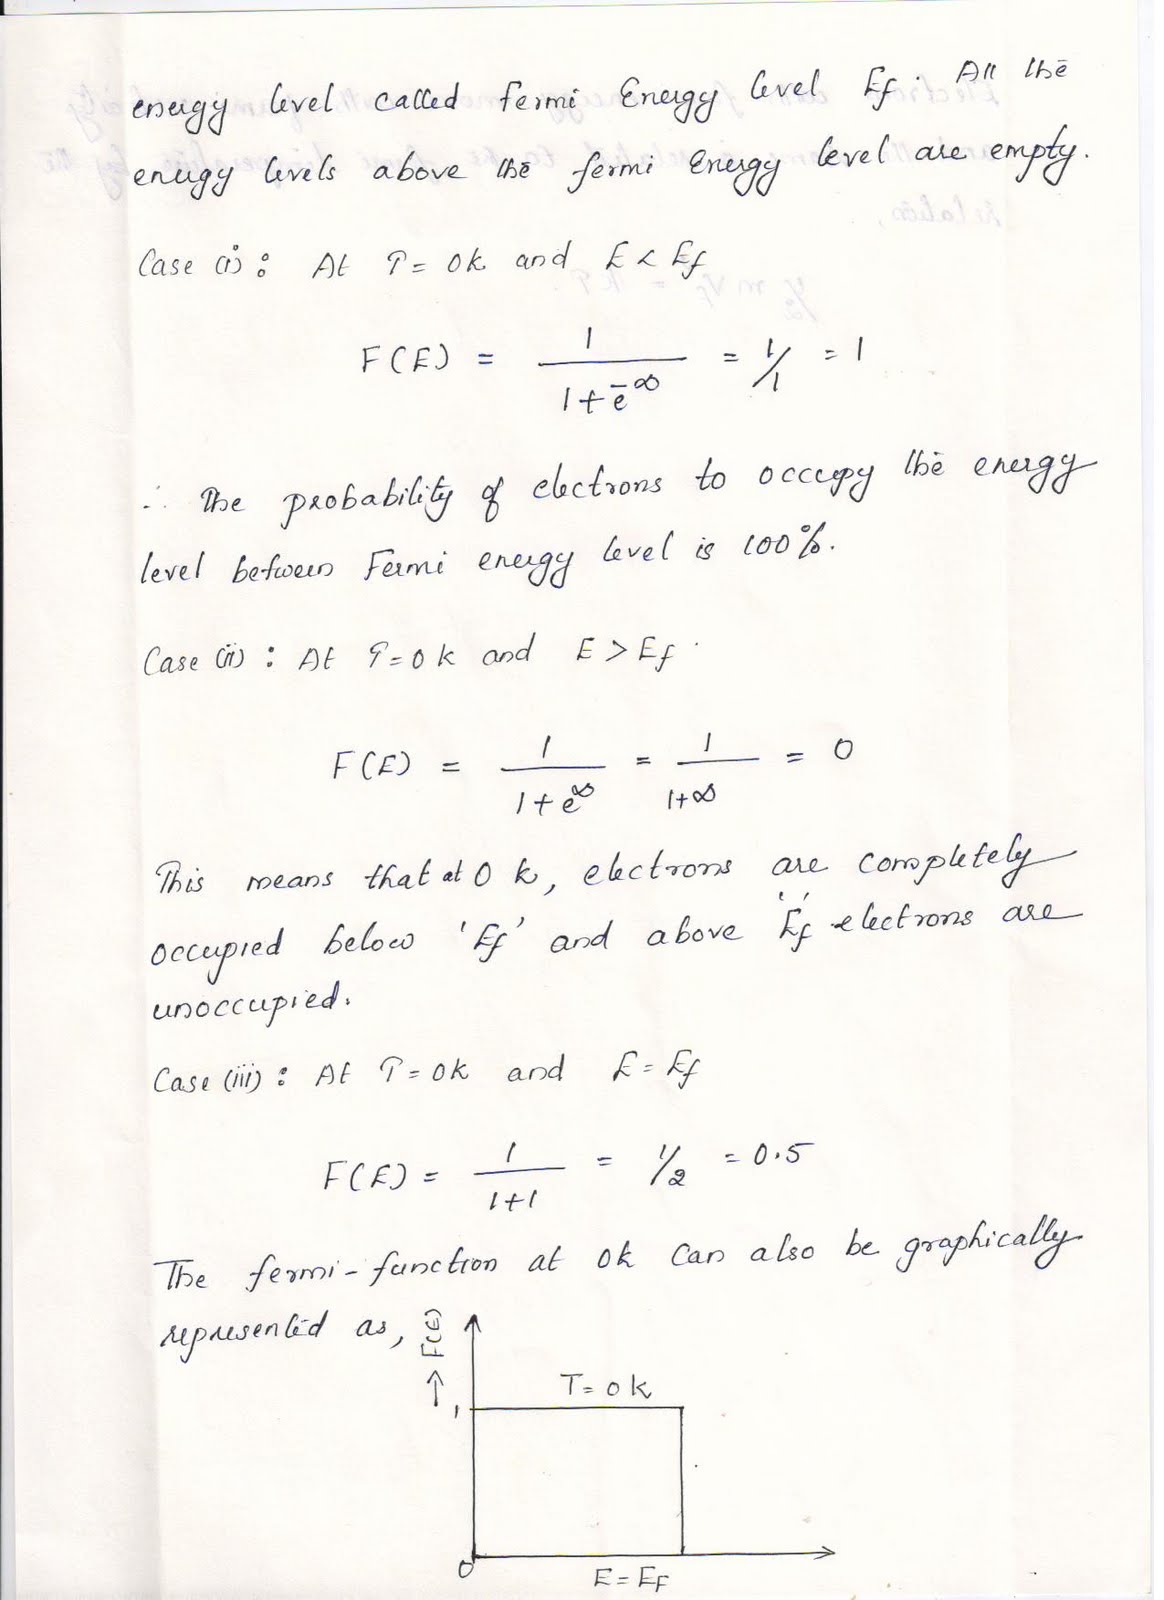 energy level called fermi Energy level Ef. All the
energy levels above the fermi Energy level are empty.
Case (i) : At T = 0k and E < Ef
F(E) = 1 / (1 + e^-∞) = 1/1 = 1
∴ The probability of electrons to occupy the energy
level between Fermi energy level is 100%.
Case (ii) : At T = 0k and E > Ef.
F(E) = 1 / (1 + e^∞) = 1 / (1+∞) = 0
This means that at 0 k, electrons are completely
occupied below 'Ef' and above 'Ef' electrons are
unoccupied.
Case (iii) : At T = 0k and E = Ef
F(E) = 1 / (1+1) = 1/2 = 0.5
The fermi-function at 0k can also be graphically
represented as,
→ F(E)
T = 0k
1
0
E = EF